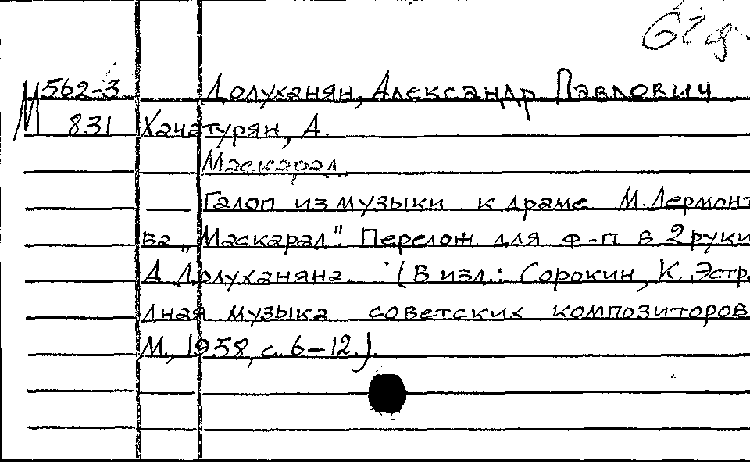 62 g.
М 562-3 Долуханян, Александр Павлович
831 Хачатурян, А.
Маскарад.
Галоп из музыки к драме М. Лермонт
ва „Маскарад". Перелож для ф-п в 2 руки
А. Долуханяна. (В изд.: Сорокин, К. Эстра
дная музыка советских композиторов
М., 1958, с. 6–12.).